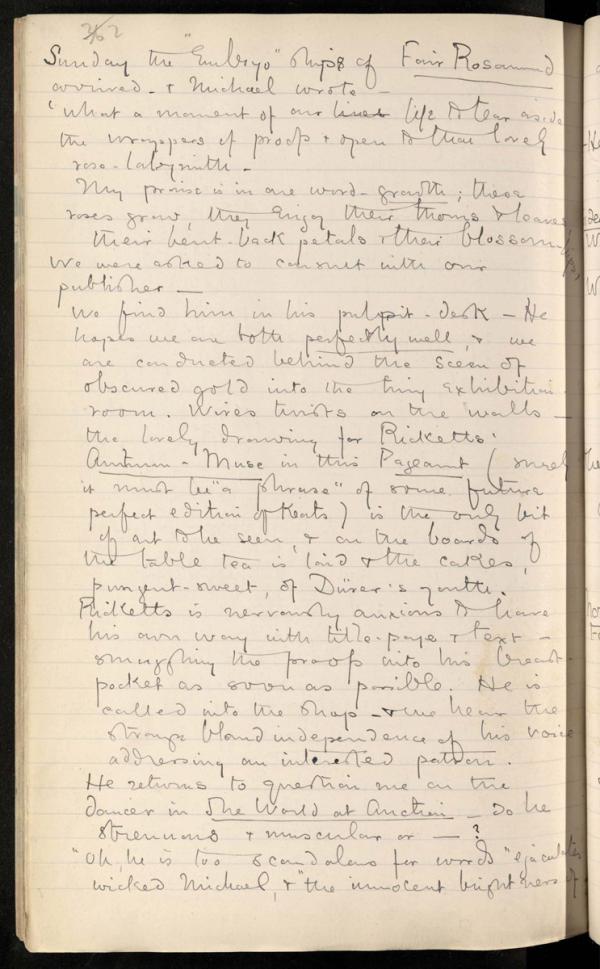 Sunday the "Embryo" ships of Fair Rosamund
arrived - & Michael wrote -
'What a moment of our lives life to tear aside
the wrappers of proofs & open to that lovely
rose-labyrinth -
My praise is in one word - growth; these
roses grow, they enjoy their thorns & leaves
their bent-back petals & their blossom
We were asked to consult with our
publisher -
We find him in his pulpit-desk - He
hopes we are both perfectly well, & we
are conducted behind the screen of
obscured gold into the tiny exhibition
room. Wires twists on the walls -
the lovely drawing for Ricketts'
Autumn-Muse in this Pageant (surely
it must be "a phrase" of some future
perfect edition of Keats) is the only bit
of art to be seen, & on the boards of
the table tea is laid & the cakes,
pungent-sweet, of Dürer's youth.
Ricketts is nervously anxious to have
his own way with title-page & text -
smuggling the proofs into his breast-
pocket as soon as possible. He is
called into the shop - & we hear the
strange bland independence of his voice
addressing an interested patron.
He returns to question me on the
dancer in The World at Auction - Is he
strenuous & muscular or — ?
"Oh, he is too scandalous for words" ejaculates
wicked Michael, & "the innocent brightness of